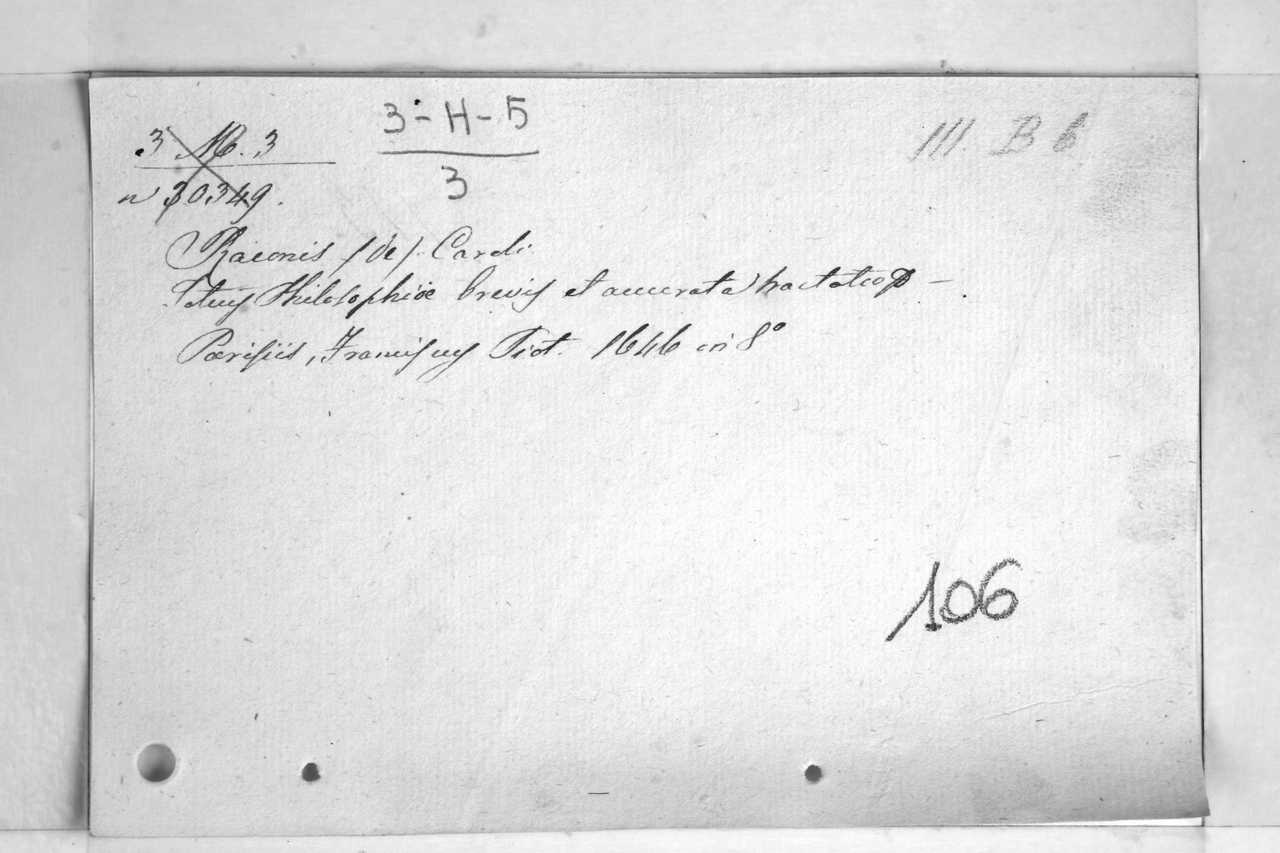 3 M. 3
n 30349.
3-H-5
3
III. B b
Raconis (de) Card.
Totius Philosophiæ brevis et accurata tractatio —
Parisiis, Franciscus Piot. 1646 in 8°
106